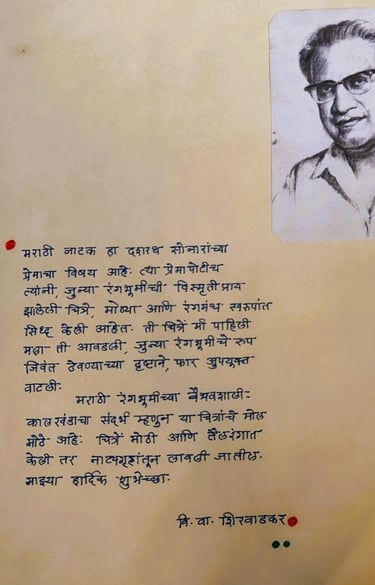 मराठी नाटक हा दशरथ सोनारांच्या
प्रेमाचा विषय आहे. त्या प्रेमापोटीच
त्यांनी, जुन्या रंगभूमीची विस्मृतीप्राय
झालेली चित्रे, मोठ्या आणि रंगमंच स्वरुपांत
सिध्द केली आहेत. ती चित्रें मी पाहिली
मला ती आवडली, जुन्या रंगभूमीचे रुप
जिवंत ठेवण्याच्या दृष्टाने, फार उपयुक्त
वाटली.
मराठी रंगभूमीच्या वैभवशाली
कालखंडाचा संदर्भ म्हणुन या चित्रांचे मोल
मोठे आहे. चित्रें मोठी आणि तैलरंगात
केली तर नाट्यगृहांतून लावली जातील.
माझ्या हार्दिक शुभेच्छा.
वि. वा. शिरवाडकर